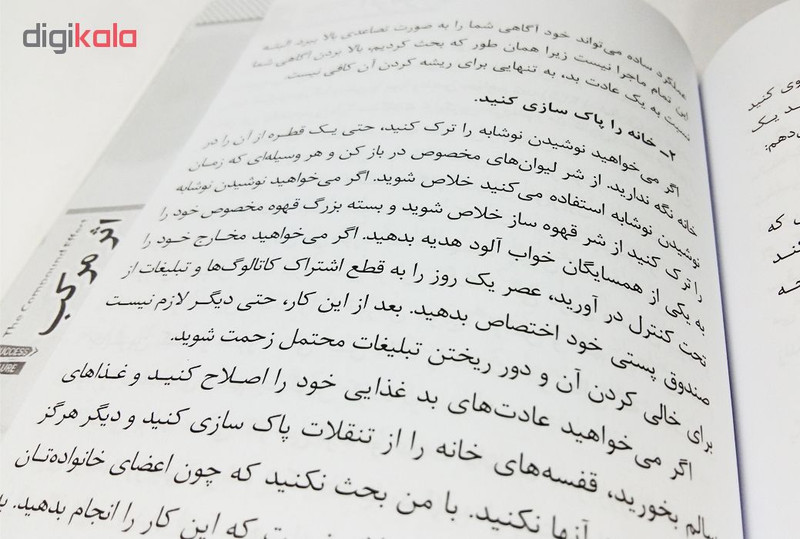 digikala
عملکرد ساده می‌تواند خود آگاهی شما را به صورت تصاعدی بالا ببرد البته
این تمام ماجرا نیست زیرا همان طور که بحث کردیم، بالا بردن آگاهی شما
نسبت به یک عادت بد، به تنهایی برای ریشه کردن آن کافی نیست.
۲- خانه را پاک سازی کنید.
اگر می‌خواهید نوشیدن نوشابه را ترک کنید، حتی یک قطره از آن را در
خانه نگه ندارید. از شر لیوان‌های مخصوص در باز کن و هر وسیله‌ای که زمان
نوشیدن نوشابه استفاده می‌کنید خلاص شوید. اگر می‌خواهید نوشیدن نوشابه
را ترک کنید از شر قهوه ساز خلاص شوید و بسته بزرگ قهوه مخصوص خود را
به یکی از همسایگان خواب آلود هدیه بدهید. اگر می‌خواهید مخارج خود را
تحت کنترل در آورید، عصر یک روز را به قطع اشتراک کاتالوگ‌ها و تبلیغات از
صندوق پستی خود اختصاص بدهید. بعد از این کار، حتی دیگر لازم نیست
برای خالی کردن آن و دور ریختن تبلیغات محتمل زحمت شوید.
اگر می‌خواهید عادت‌های بد غذایی خود را اصلاح کنید و غذاهای
سالم بخورید، قفسه‌های خانه را از تنقلات پاک سازی کنید و دیگر هرگز
آنها نکنید. با من بحث نکنید که چون اعضای خانواده‌تان
که این کار را انجام بدهید.
اثر مرکب
The Compound Effect
SUCCESS
وی کنید
د یک
دهم:
ی که
نند
چه